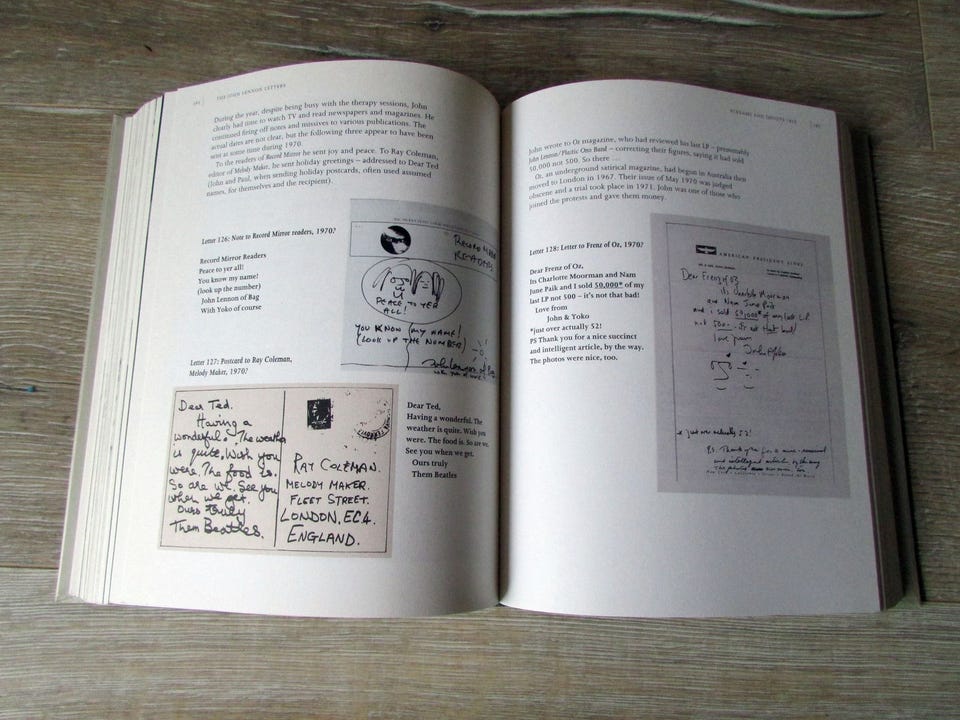 THE JOHN LENNON LETTERS
During the year, despite being busy with the therapy sessions, John
clearly had time to watch TV and read newspapers and magazines. He
continued firing off notes and missives to various publications. The
actual dates are not clear, but the following three appear to have been
sent at some time during 1970.
To the readers of Record Mirror he sent joy and peace. To Ray Coleman,
editor of Melody Maker, he sent holiday greetings – addressed to Dear Ted
(John and Paul, when sending holiday postcards, often used assumed
names, for themselves and the recipient).
Letter 126: Note to Record Mirror readers, 1970?
Record Mirror Readers
Peace to yer all!
You know my name!
(look up the number)
John Lennon of Bag
With Yoko of course
RECORD MIRROR
READERS
PEACE TO YER
ALL!
YOU KNOW (MY NAME!
(LOOK UP THE NUMBER)
John Lennon of Bag
Letter 127: Postcard to Ray Coleman,
Melody Maker, 1970?
Dear Ted.
Having a
wonderful. The weather
is quite. Wish you
were. The food is.
So are we. See you
when we get.
Ours truly
Them Beatles.
RAY COLEMAN.
MELODY MAKER.
FLEET STREET.
LONDON, EC4.
ENGLAND.
Dear Ted,
Having a wonderful. The
weather is quite. Wish you
were. The food is. So are we.
See you when we get.
Ours truly
Them Beatles
John wrote to Oz magazine, who had reviewed his last LP – presumably
John Lennon/Plastic Ono Band – correcting their figures, saying it had sold
50,000 not 500. So there . . .
Oz, an underground satirical magazine, had begun in Australia then
moved to London in 1967. Their issue of May 1970 was judged
obscene and a trial took place in 1971. John was one of those who
joined the protests and gave them money.
Letter 128: Letter to Frenz of Oz, 1970?
Dear Frenz of Oz,
Its Charlotte Moorman and Nam
June Paik and I sold 50,000* of my
last LP not 500 – it's not that bad!
Love from
John & Yoko
*just over actually 52!
PS Thank you for a nice succinct
and intelligent article, by the way.
The photos were nice, too.
AMERICAN PRESIDENT LINES
Dear Frenz of Oz
its Charlotte Moorman
and Nam June Paik
and i sold 50,000* of my last LP
not 500 - it's not that bad!
love from
John & Yoko
* just over actually 52!